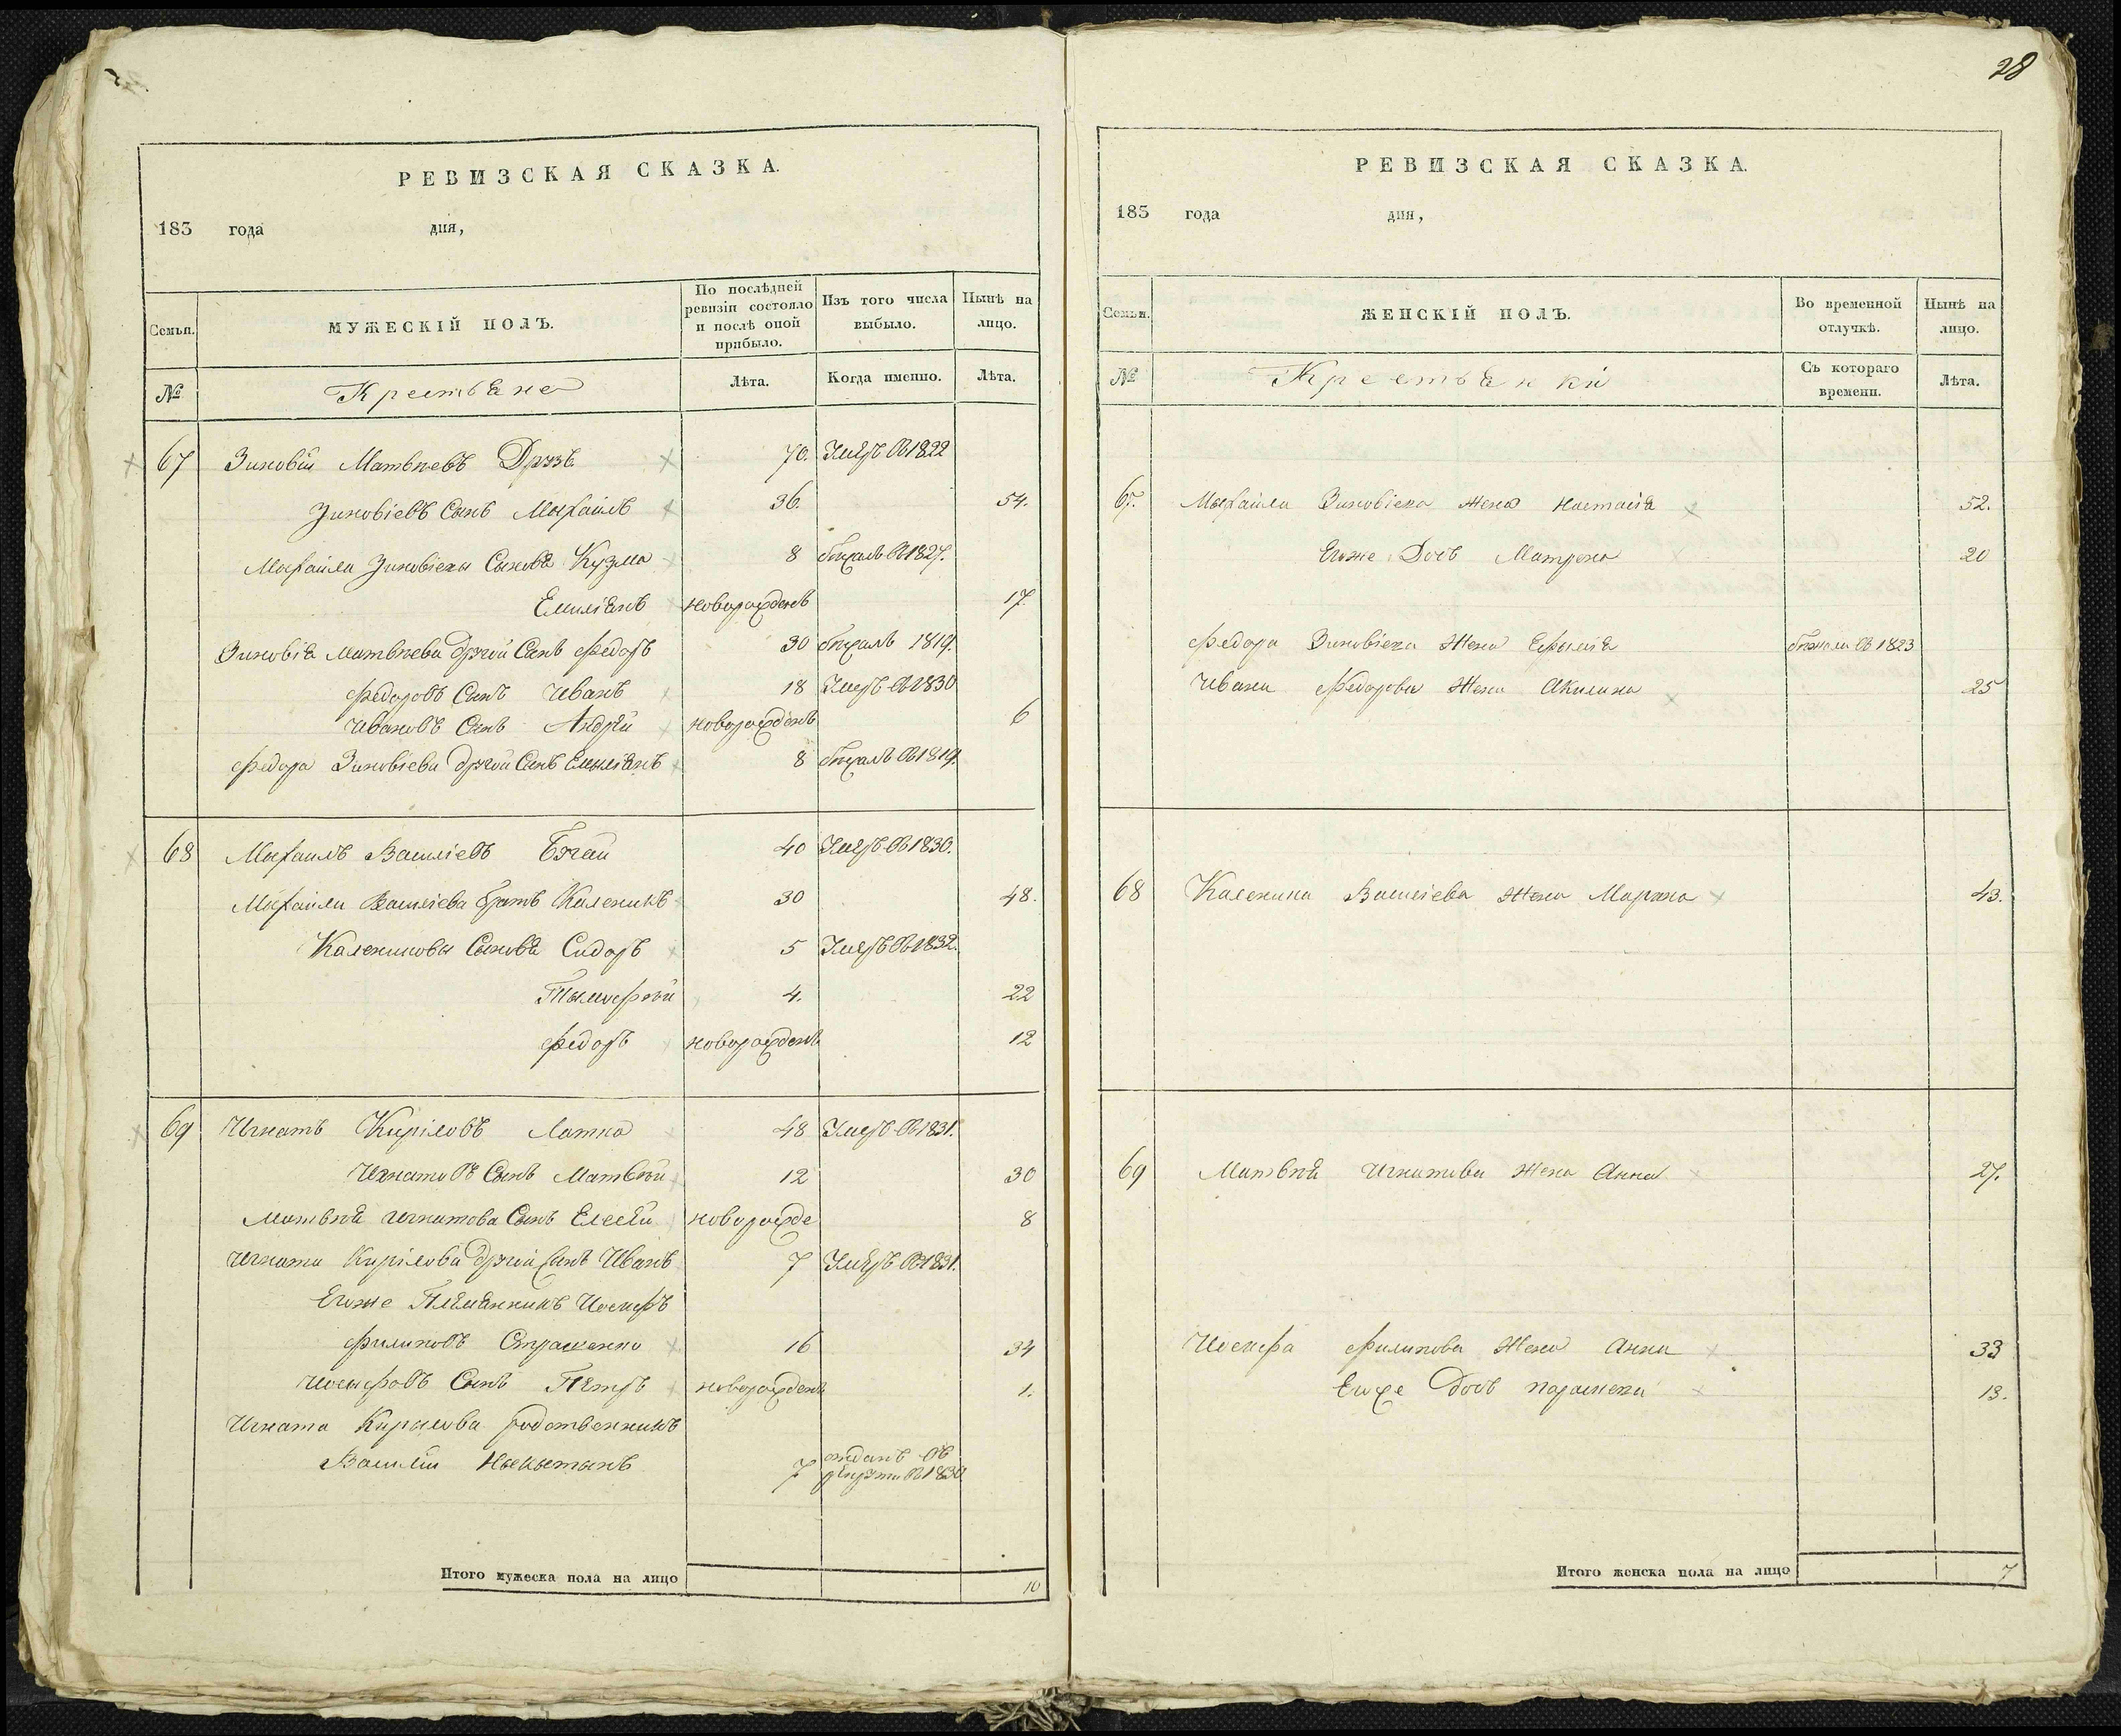 28
РЕВИЗСКАЯ СКАЗКА.
183 года дня,
Семьи. МУЖЕСКІЙ ПОЛЪ. По послѣдней ревизіи состояло и послѣ оной прибыло. Изъ того числа выбыло. Нынѣ на лицо.
№ Крестьяне Лѣта. Когда именно. Лѣта.
67 Зиновій Матвѣевъ 70. Умеръ в 1822
Зиновіевъ Сынъ Михаилъ 36. 54.
Михаила Зиновіева Сыновя Кузма 8 бѣжалъ в 1827.
Емиліянъ новорожденъ 17.
Зиновія Матвѣева другой Сынъ Федоръ 30 бѣжалъ 1819.
Федоровъ Сынъ Иванъ 18 Умеръ в 1830
Ивановъ Сынъ Андрей новорожденъ 6
Федора Зиновіева другой Сынъ Емиліянъ 8 бѣжалъ в 1819.
68 Михаилъ Василіевъ 40 Умеръ в 1830.
Михаила Василіева братъ Каленикъ 30 48.
Калениковы Сыновя Сидоръ 5 Умеръ в 1832.
Тымофѣй 4. 22
Федоръ новорожденъ 12
69 Игнатъ Кириловъ Латка 48 Умеръ в 1831.
Игнатовъ Сынъ Матвѣй 12 30
Матвѣя Игнатова Сынъ Елесѣй новорожде 8
Игната Кирилова другой Сынъ Иванъ 7 Умеръ в 1831.
Егоже Племянникъ Иосифъ
Филиповъ 16 34
Иосифовъ Сынъ Петръ новорожденъ 1.
Игната Кирилова родственникъ
Василій Никитинъ 7 отданъ въ
рекруты в 1830
Итого мужеска пола на лицо 10
РЕВИЗСКАЯ СКАЗКА.
183 года дня,
Семьи. ЖЕНСКІЙ ПОЛЪ. Во временной отлучкѣ. Нынѣ на лицо.
№ Крестьянки Съ котораго времени. Лѣта.
67. Михаила Зиновіева жена Настасія 52.
Егоже Дочь Матрена 20
Федора Зиновіева Жена Ефимія бѣжала в 1823
Ивана Федорова Жена Акилина 25
68 Каленика Василіева Жена Марина 43.
69 Матвѣя Игнатова Жена Анна 27.
Иосифа Филипова Жена Анна 33
Егоже Дочь 13.
Итого женска пола на лицо 7